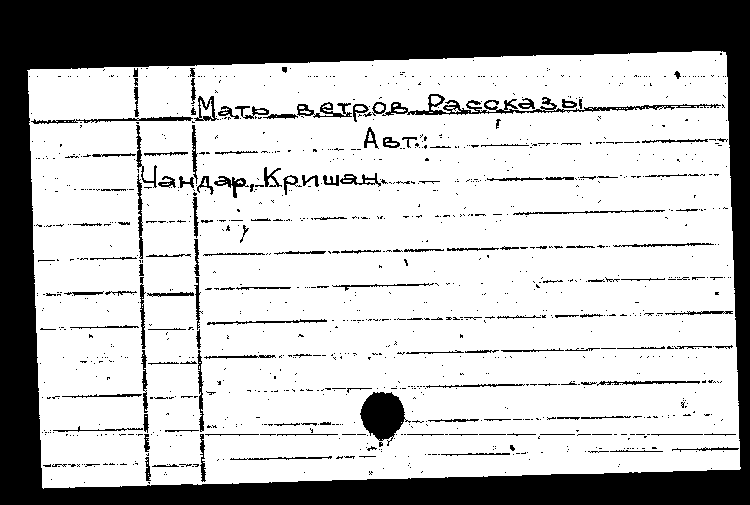 Мать ветров Рассказы
Авт.:
Чандар, Кришан.